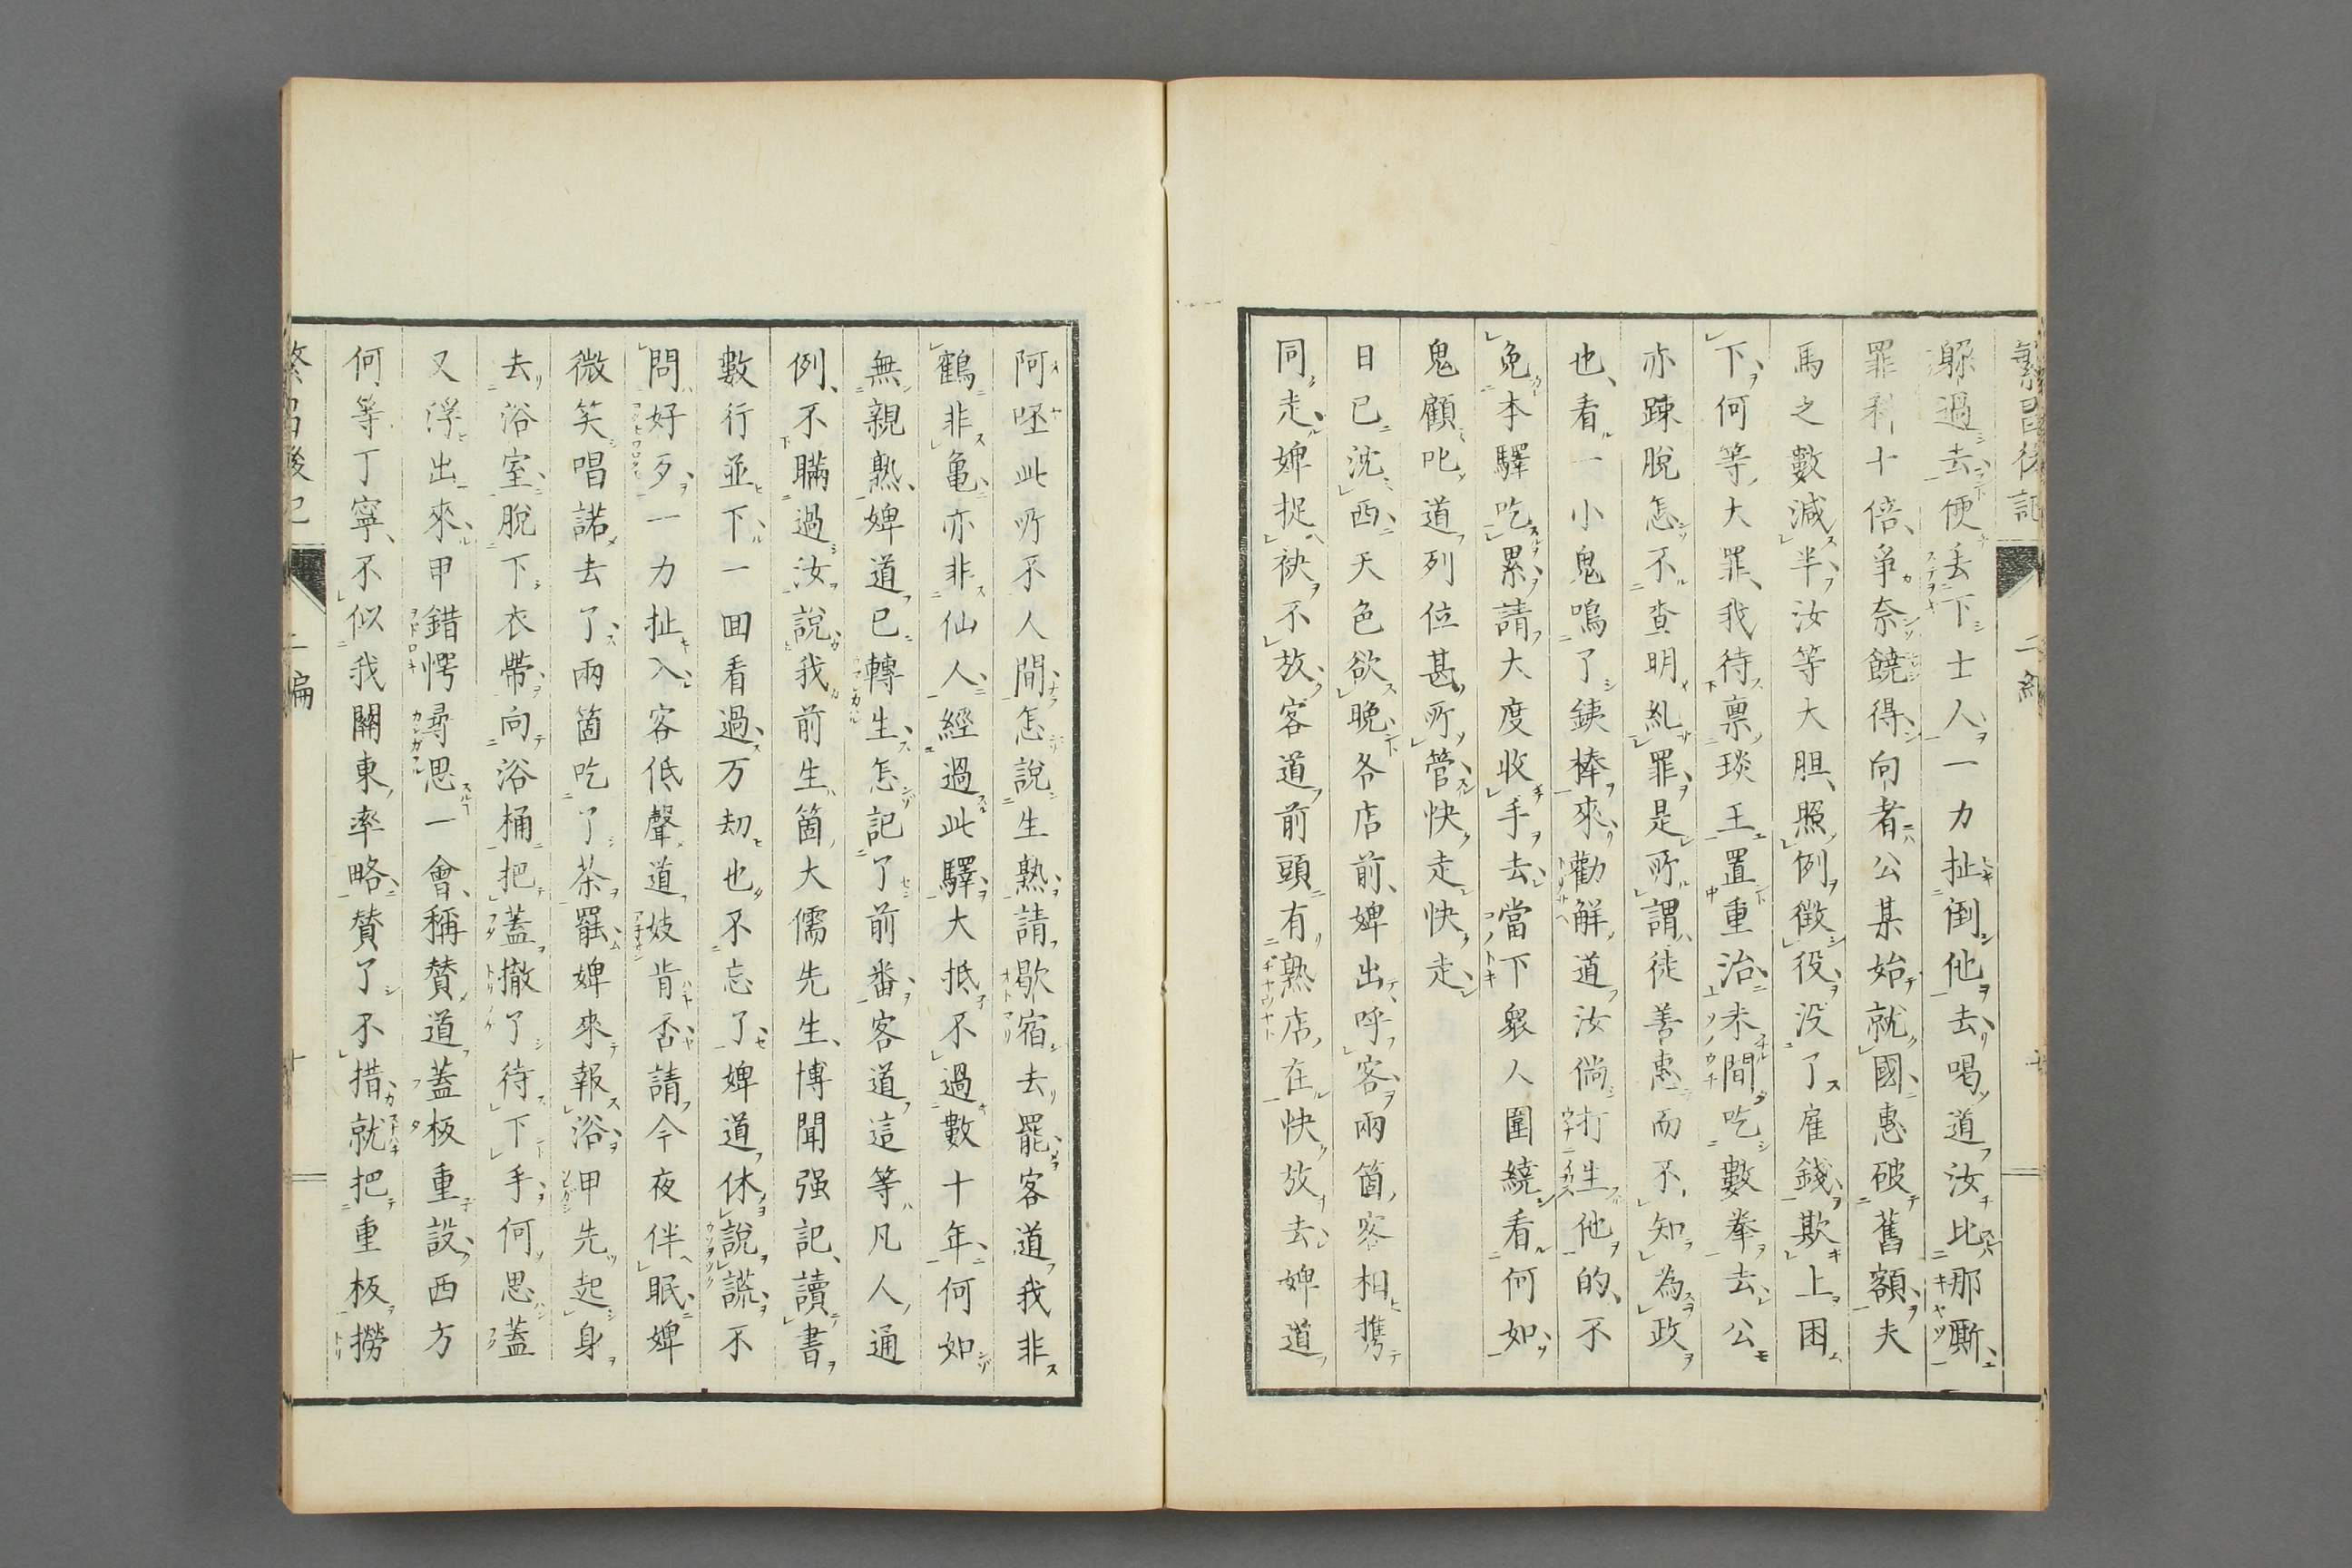 繁昌後記 二編
躲過去便丢下士人一力扯倒他去喝道汝比那厮
罪科十倍爭奈饒得向者公某始就國惠破舊額夫
馬之數減半汝等大胆照例徴役没了雇錢欺上困
下何等大罪我待禀琰王置重治未間吃數拳去公
亦踈脱怎不査明糺罪是所謂徒善惠而不知為政
也看一小鬼鳴了銕棒來勸解道汝倘打生他的不
免本驛吃累請大度收手去當下衆人圍繞看何如
鬼顧叱道列位甚所管快走快走
日已沈西天色欲晩各店前婢出呼客兩箇客相携
同走婢捉袂不放客道前頭有熟店在快放去婢道
阿呸此所不人間怎說生熟請歇宿去罷客道我非
鶴非亀亦非仙人經過此驛大抵不過數十年何如
無親熟婢道已轉生怎記了前番客道這等凡人通
例不瞞過汝說我前生箇大儒先生博聞强記讀書
數行並下一回看過万劫也不忘了婢道休說謊不
問好歹一力扯入客低聲道妓肯否請今夜伴眠婢
微笑唱諾去了兩箇吃了茶罷婢來報浴甲先起身
去浴室脱下衣帶向浴桶把蓋撤了待下手何思蓋
又浮出來甲錯愕尋思一會稱賛道蓋板重設西方
何等丁寧不似我關東率略賛了不措就把重板撈
繁昌後記 二編 十